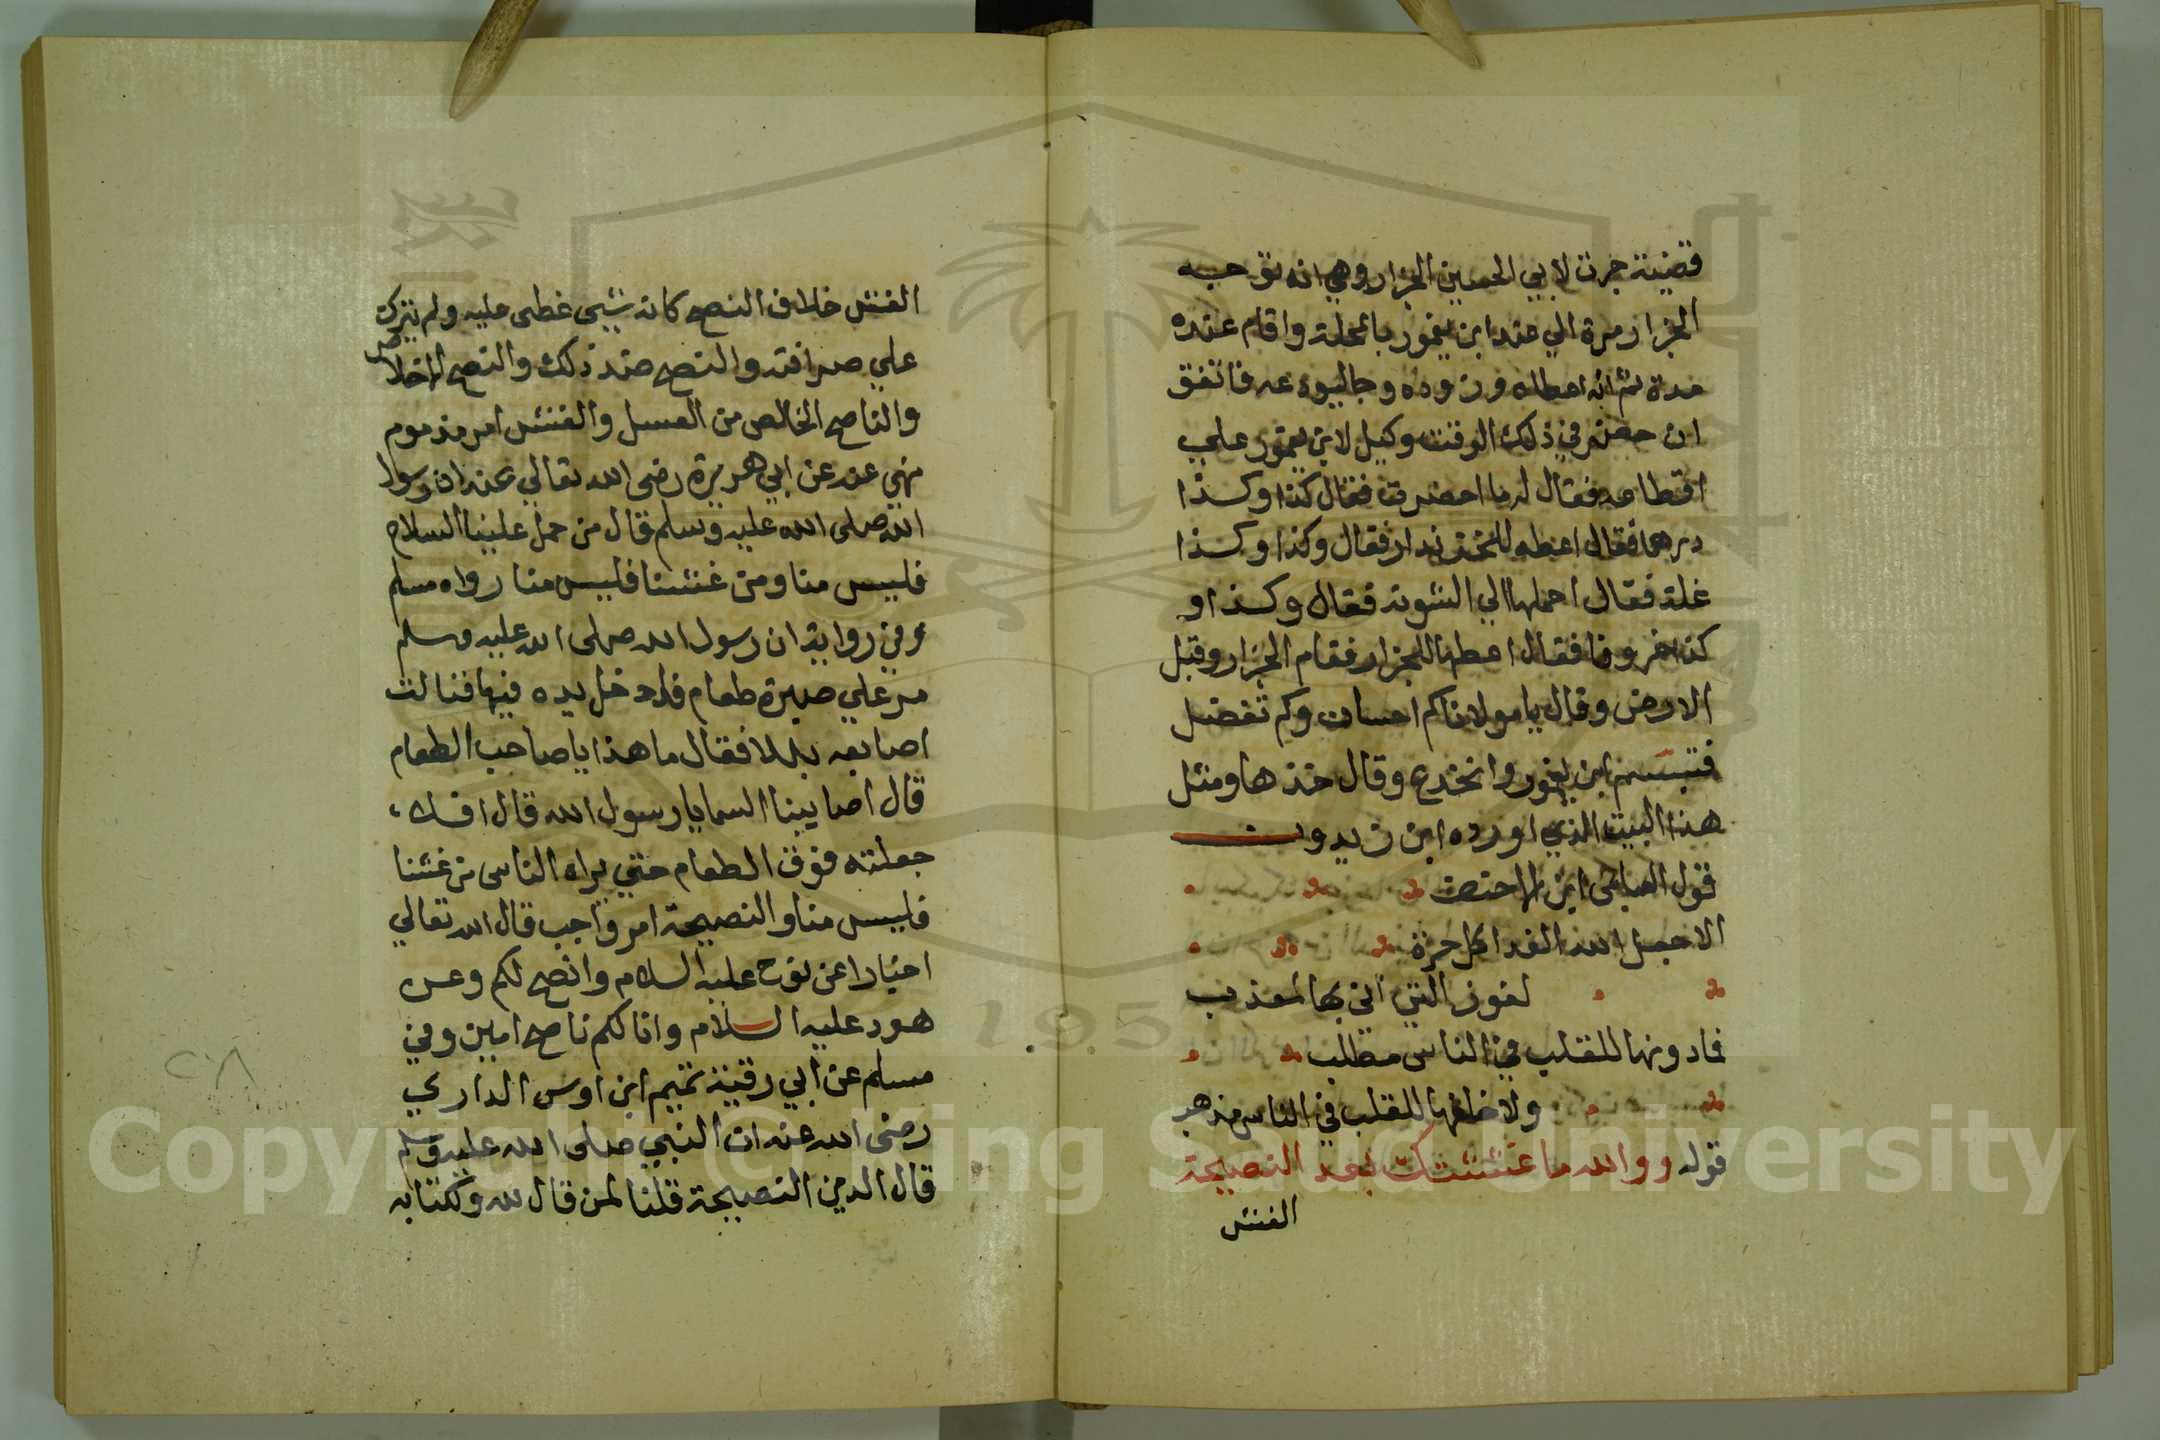 قضية جرت لابي الحسين الجزار وهي انه توجه
الجزار مرة الي عند ابن يغمور بالمحلة واقام عنده
مدة ثم انه اعطاه وزوده وجا ليودعه فاتفق
ان حضر في ذلك الوقت وكيل لابن يغمور علي
اقطاعه فقال له ما احضرت فقال كذا وكذا
درهما فقال اعطه للخزندار فقال وكذا وكذا
غلة فقال احملها الي الشونة فقال وكذا و
كذا خروفا فقال اعطها للجزار فقام الجزار وقبل
الارض وقال يا مولانا كم احسان وكم تفضل
فتبسم ابن يغمور وانخدع وقال خذها ومثل
هذا البيت الذي اورده ابن زيدون
قول العباس ابن الاحنف
الا جعل الله الفدا كل حرة
لفوز التي اني بها لمعذب
فما دونها للقلب في الناس مطلب
ولا خلفها للقلب في الناس مذهب
قوله ووالله ما غششتك بعد النصيحة
الغش
الغش خلاف النصح كانه شي غطى عليه ولم يترك
علي صرافته والنصح ضد ذلك والنصح الاخلاص
والناصح الخالص من العسل والغش امر مذموم
نهي عنه عن ابي هريرة رضى الله تعالي عنه ان رسول
الله صلى الله عليه وسلم قال من حمل علينا السلاح
فليس منا ومن غشنا فليس منا رواه مسلم
وفي رواية ان رسول الله صلى الله عليه وسلم
مر علي صبرة طعام فادخل يده فيها فنالت
اصابعه بللا فقال ما هذا يا صاحب الطعام
قال اصابتنا السما يا رسول الله قال افلا
جعلته فوق الطعام حتي يراه الناس من غشنا
فليس منا والنصيحة امر واجب قال الله تعالي
اخبارا عن نوح عليه السلام وانصح لكم وعن
هود عليه السلام وانا لكم ناصح امين وفي
مسلم عن ابي رقية تميم ابن اوس الداري
رضى الله عنه ان النبي صلى الله عليه وسلم
قال الدين النصيحة قلنا لمن قال لله ولكتابه
٢٨
1957
Copyright © King Saud University